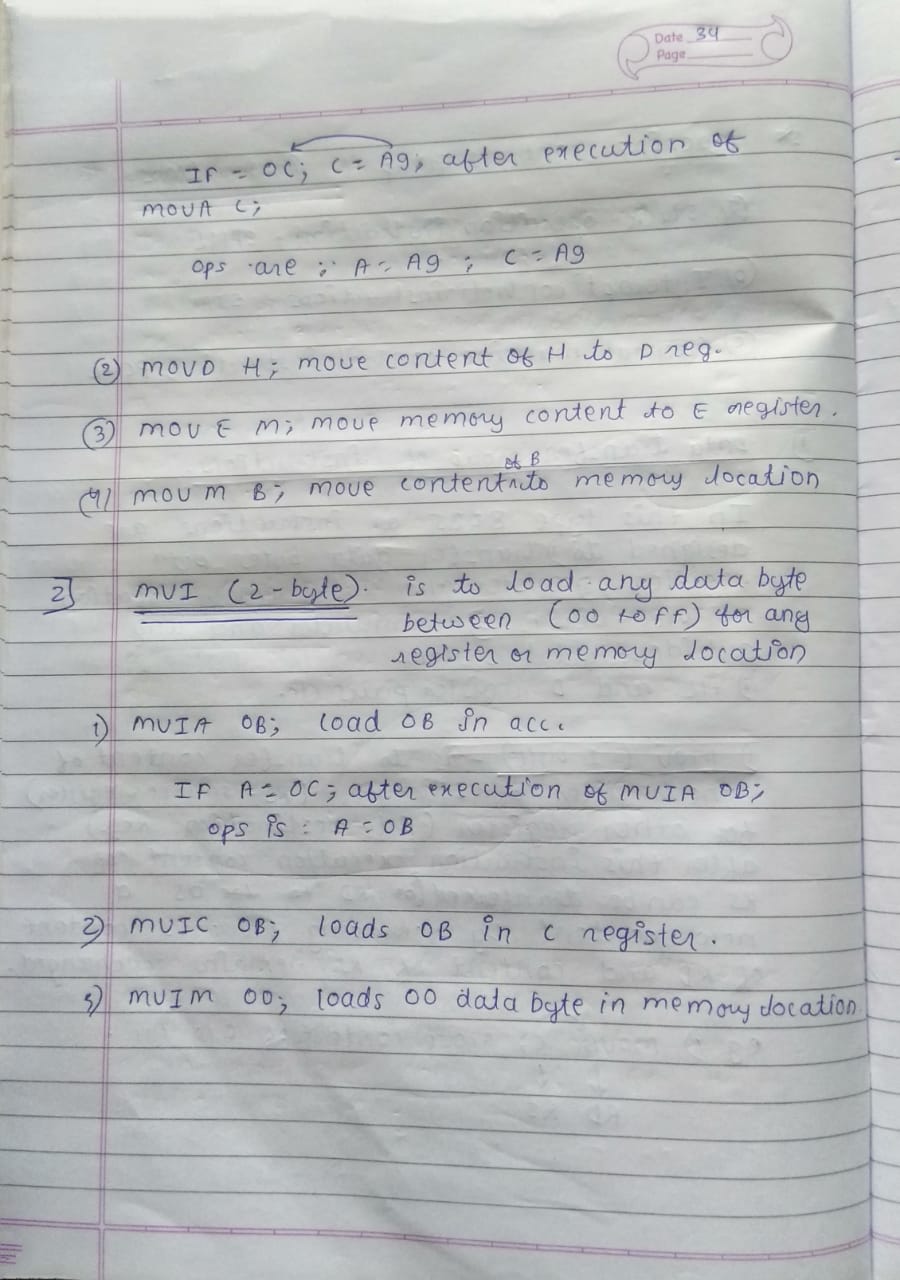 Date 34
Page
If = 0C; C = A9, after execution of
MOVA C;
ops are : A = A9 ; C = A9
(2) MOVD H; move content of H to D reg.
(3) MOV E M; move memory content to E register.
of B
(4) MOV M B; move content to memory location
2] MVI (2-byte). is to load any data byte
between (00 to ff) for any
register or memory location
1) MVIA 0B; load 0B in acc.
If A = 0C; after execution of MVIA 0B;
ops is : A = 0B
2) MVIC 0B; loads 0B in C register.
3) MVIM 00; loads 00 data byte in memory location